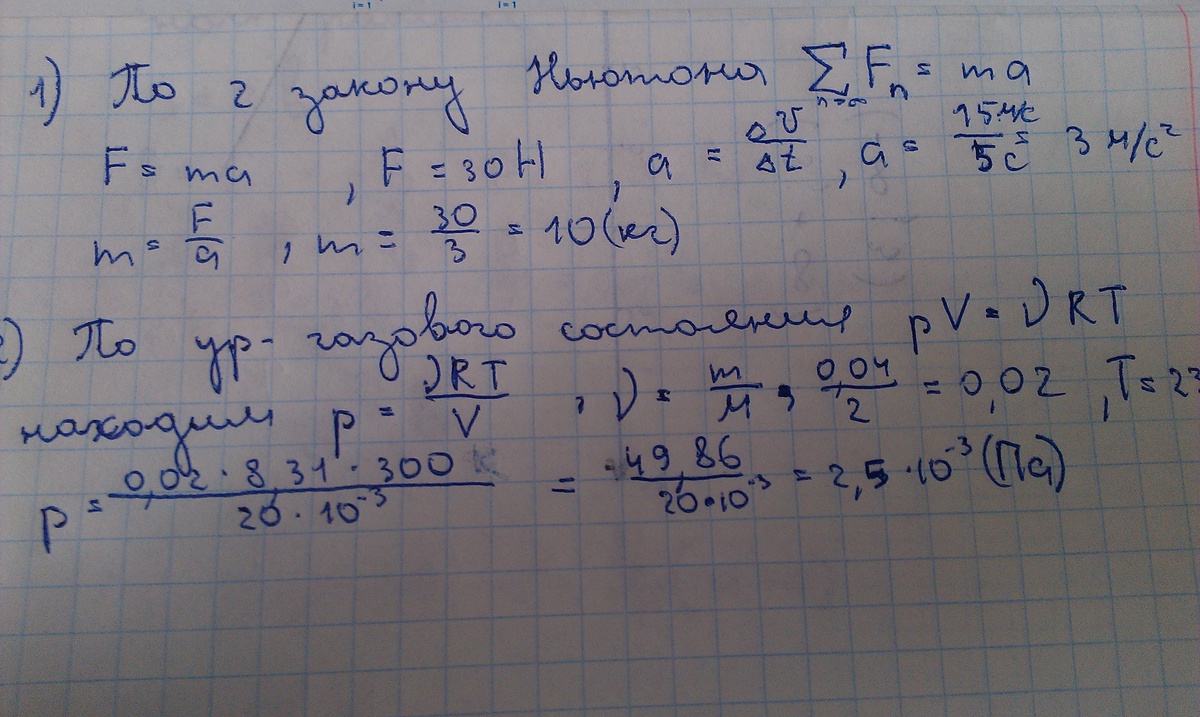 1) По 2 закону Ньютона ∑ Fn = ma
n=∞
F = ma , F = 30H , a = ΔV/Δt , a = 15м/с / 5с = 3 м/с²
m = F/a , m = 30/3 = 10 (кг)
) По ур- газового состояния pV = νRT
находим p = νRT/V , ν = m/M = 0,04/2 = 0,02 , T = 27
p = 0,02 · 8,31 · 300 / 20 · 10⁻³ = 49,86 / 20 · 10⁻³ = 2,5 · 10⁻³ (Па)